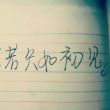 若只如初见。